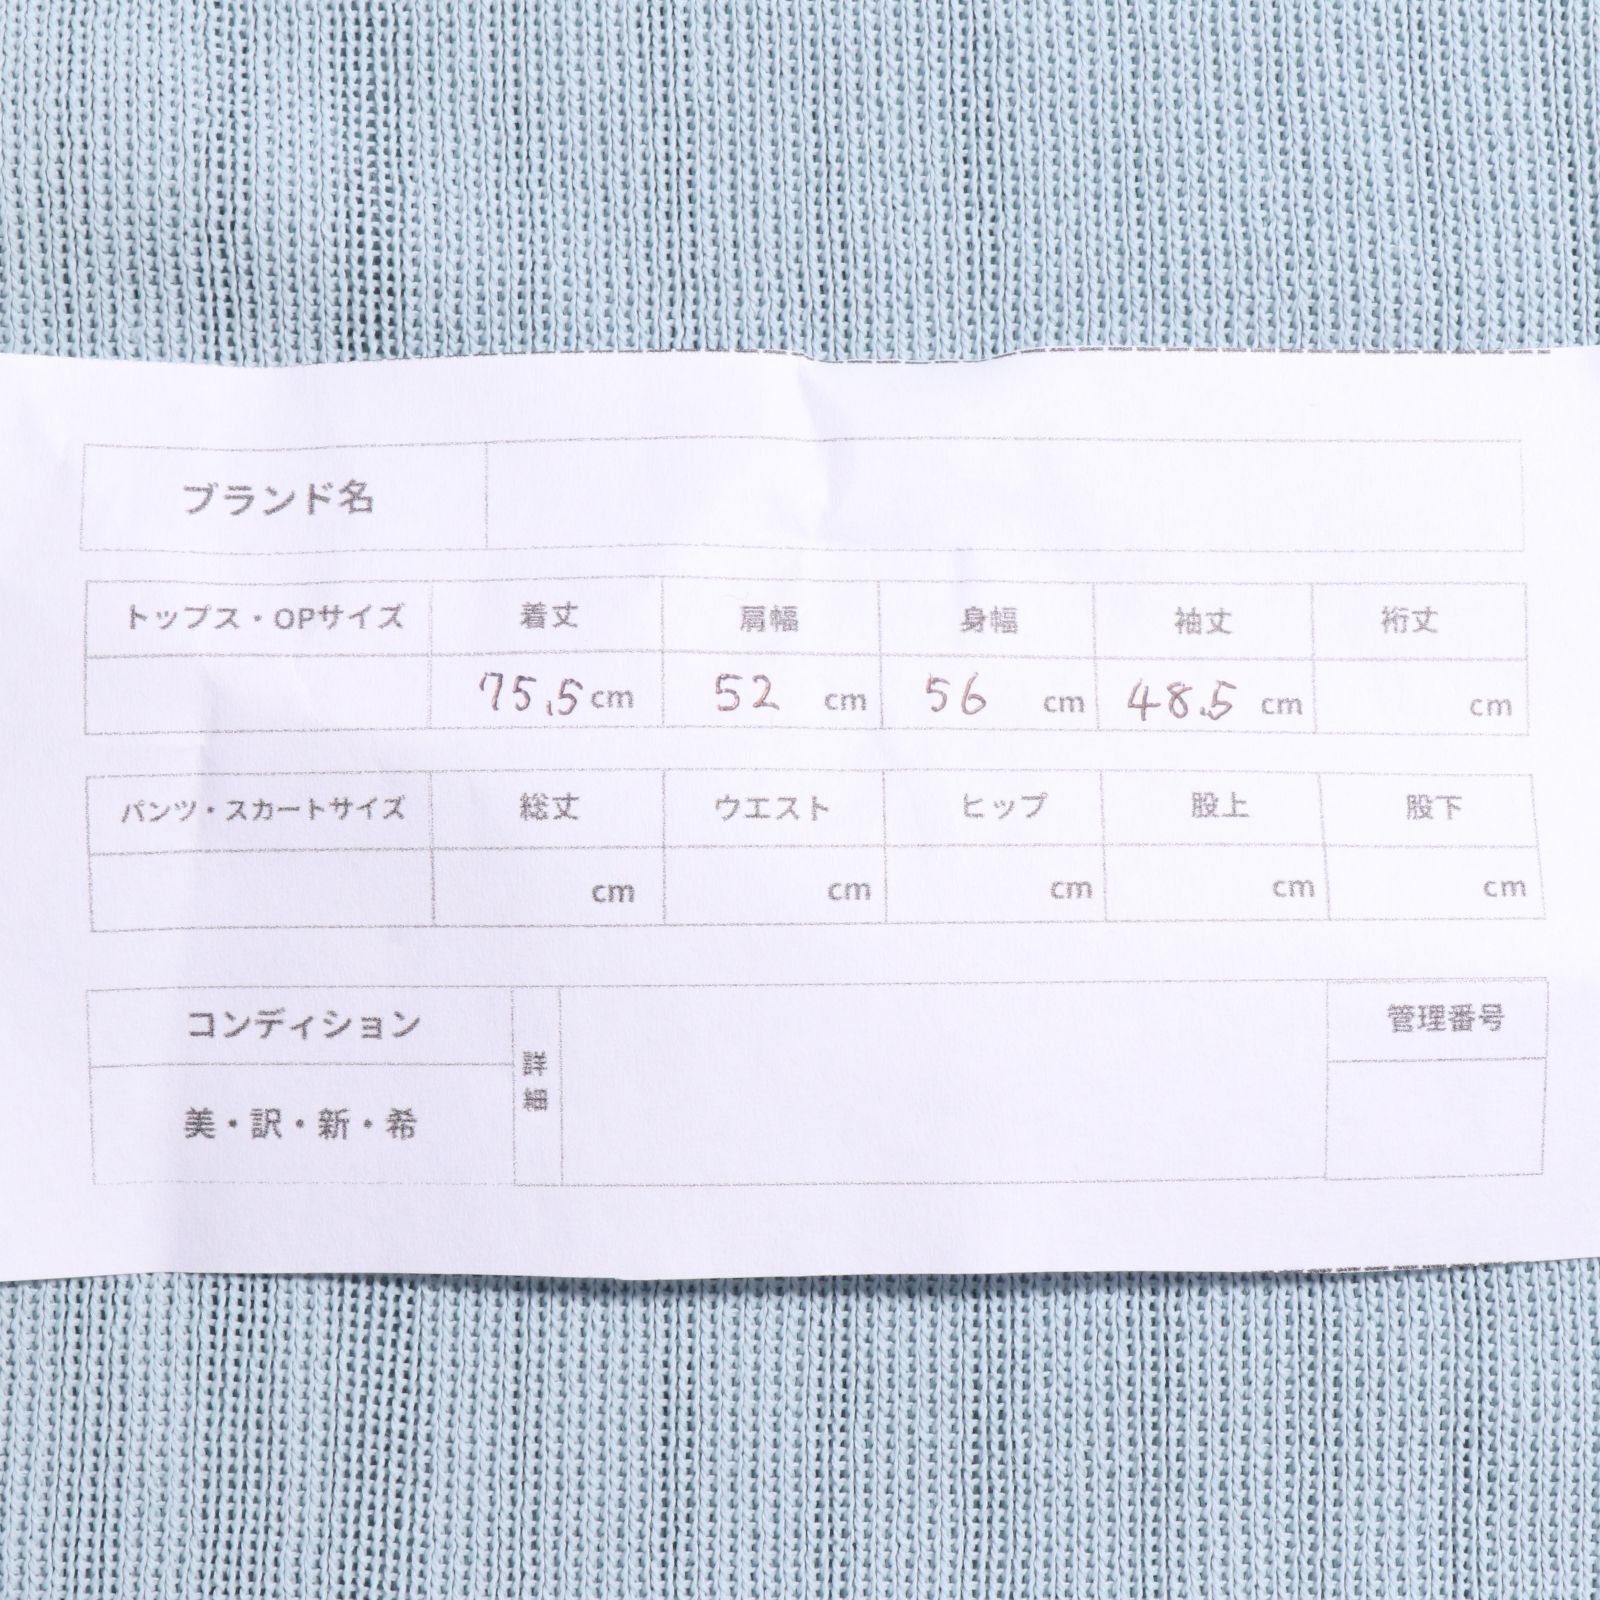 ブランド名
トップス・OPサイズ 着丈 肩幅 身幅 袖丈 裄丈
75.5cm 52 cm 56 cm 48.5 cm cm
パンツ・スカートサイズ 総丈 ウエスト ヒップ 股上 股下
cm cm cm cm cm
コンディション 詳細 管理番号
美・訳・新・希